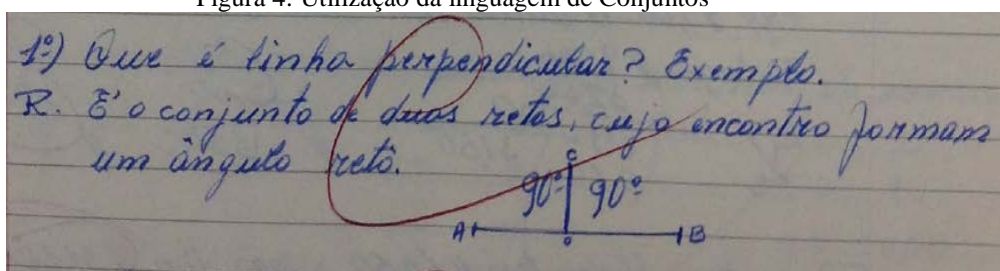 Figura 4: Utilização da linguagem de Conjuntos
1º) Que é linha perpendicular? Exemplo.
R. É o conjunto de duas retas, cujo encontro formam
um ângulo retô.
C
90º 90º
A B
o